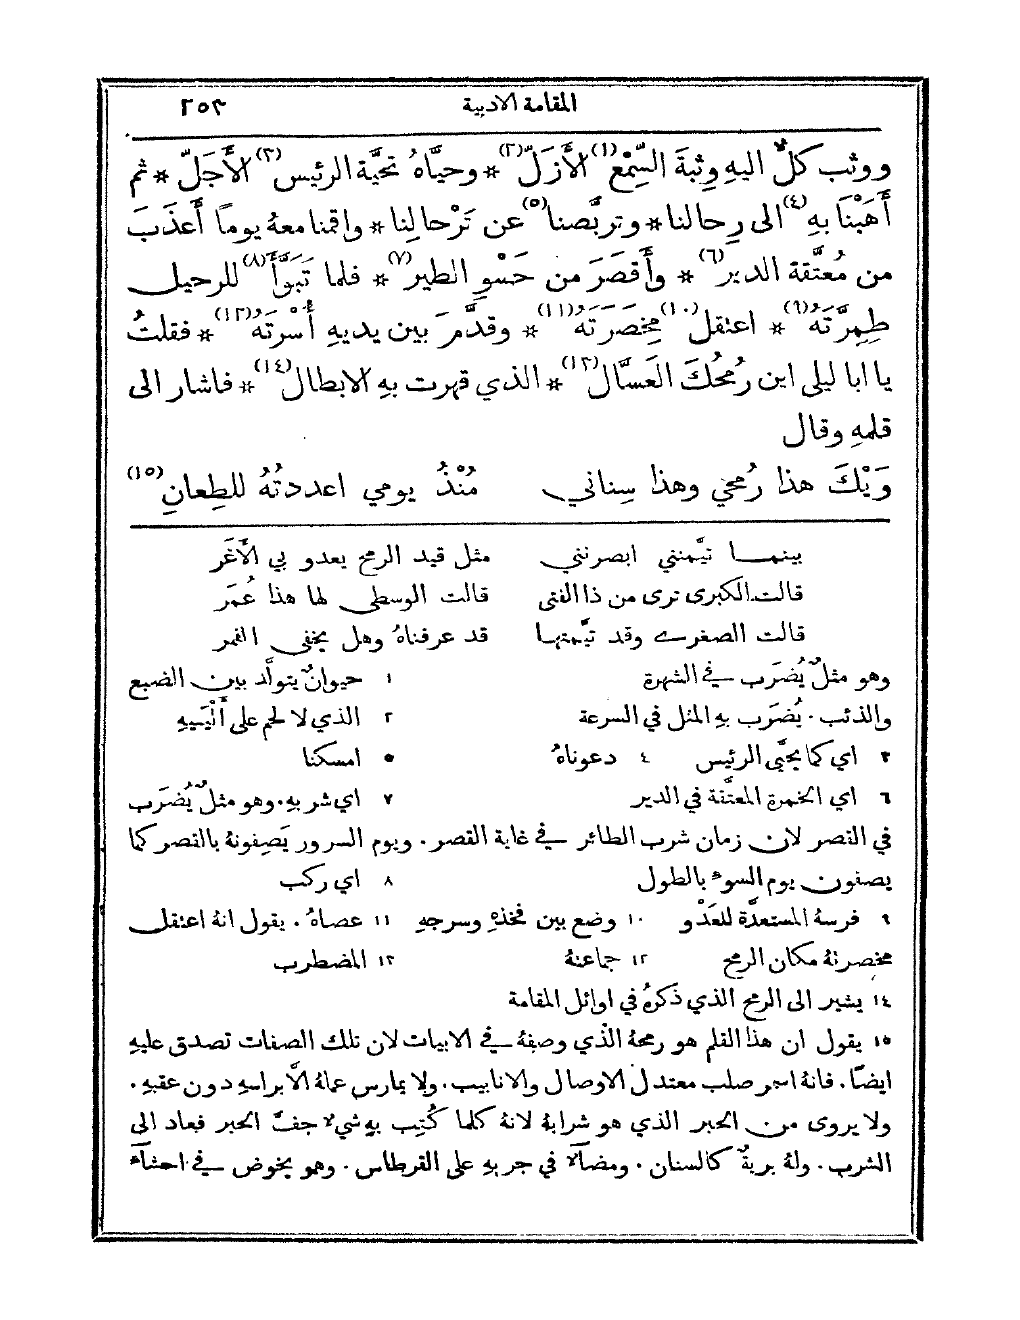 المقامة الادبية ٢٥٣
ووثب كلٌّ اليهِ وِثبةَ السِّمْعِ(١) الأَزَلِّ(٢) * وحيَّاهُ تحيَّة الرئيس(٣) الأَجَلِّ * ثم
أَهَبْنَا بهِ(٤) الى رِحالنا * وتربَّصنا(٥) عن تَرْحالِنا * واقمنا معهُ يوماً أَعذَبَ
من مُعتَّقة الدير(٦) * وأَقصَرَ من حَسْوِ الطير(٧) * فلما تَبَوَّأَ(٨) للرحيل
طِمِرَّتَهُ(٩) * اعتقل(١٠) مِخصَرَتَهُ(١١) * وقدَّمَ بين يديهِ أُسْرتَهُ(١٢) * فقلتُ
يا ابا ليلى اين رُمحُكَ العَسَّال(١٣) * الذي قهرت بهِ الابطال(١٤) * فاشار الى
قلمهِ وقال
وَيْكَ هذا رُمحي وهذا سِناني مُنْذُ يومي اعددتُهُ للطِعانِ(١٥)
بينما تيَّمنني ابصرنني مثل قيد الرمح يعدو بي الأَغَر
قالت الكبرى ترى من ذا الفتى قالت الوسطى لها هذا عُمَر
قالت الصغرى وقد تيَّمتها قد عرفناهُ وهل يخفى القمر
وهو مثلٌ يُضرَب في الشهرة ١ حيوانٌ يتولَّد بين الضبع
والذئب . يُضرَب بهِ المثل في السرعة ٢ الذي لا لحم على أَلْيَتيهِ
٣ اي كما يحيَّى الرئيس ٤ دعوناهُ ٥ امسكنا
٦ اي الخمرة المعتَّقة في الدير ٧ اي شربهِ . وهو مثلٌ يُضرَب
في القصر لان زمان شرب الطائر في غاية القصر . ويوم السرور يَصِفونهُ بالقصر كما
يصفون يوم السوء بالطول ٨ اي ركب
٩ فرسهُ المستعدَّة للعَدْو ١٠ وضع بين فخذهِ وسرجهِ ١١ عصاهُ . يقول انهُ اعتقل
مخصرتهُ مكان الرمح ١٢ جماعتهُ ١٣ المضطرب
١٤ يشير الى الرمح الذي ذكرهُ في اوائل المقامة
١٥ يقول ان هذا القلم هو رمحهُ الذي وصفهُ في الابيات لان تلك الصفات تصدق عليهِ
ايضًا . فانهُ اسمر صلب معتدل الاوصال والانابيب . ولا يمارس عملهُ الَّا براسهِ دون عقبهِ .
ولا يروى من الحبر الذي هو شرابهُ لانهُ كلما كُتِب بهِ شيءٌ جفَّ الحبر فعاد الى
الشرب . ولهُ بريقٌ كالسنان . ومضآءٌ في جريهِ على القرطاس . وهو يخوض في احشآء